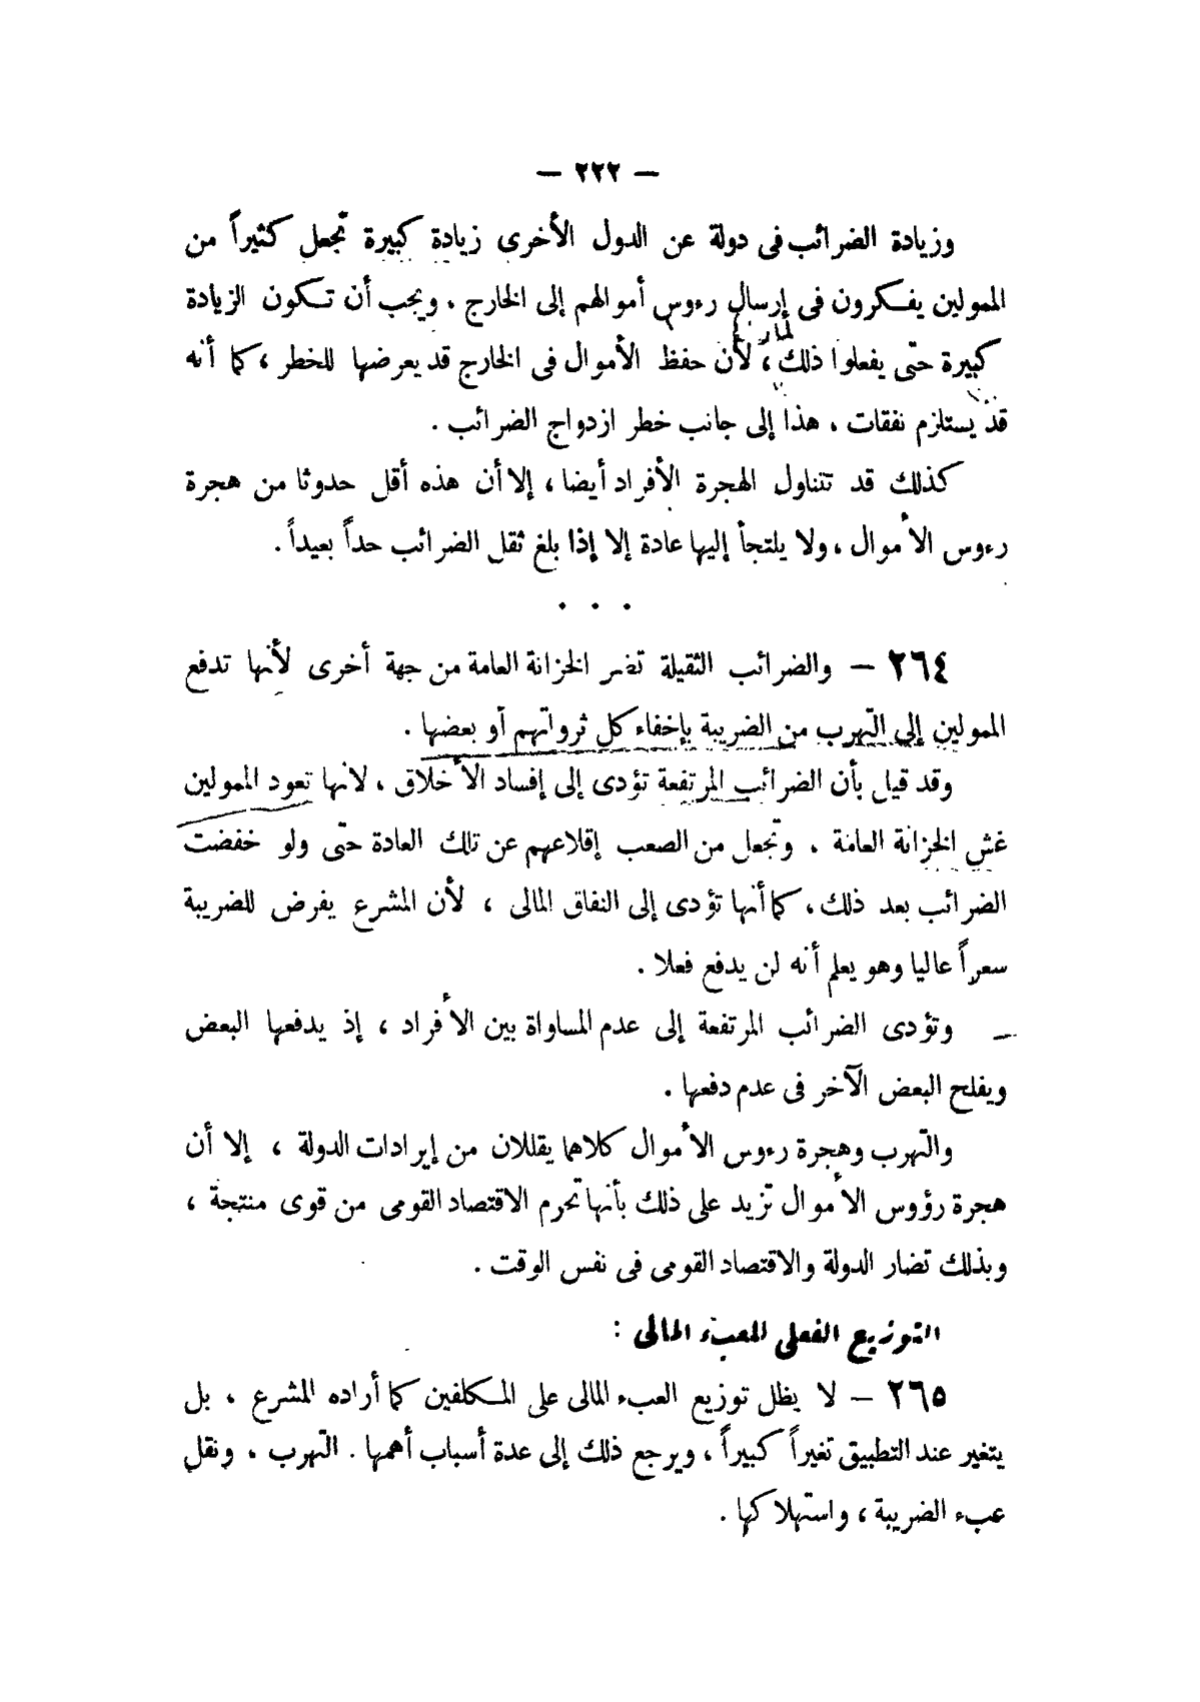 — ٢٢٢ —
وزيادة الضرائب فى دولة عن الدول الأخرى زيادة كبيرة تجعل كثيراً من
الممولين يفكرون فى إرسال رءوس أموالهم إلى الخارج . ويجب أن تكون الزيادة
كبيرة حتى يفعلوا ذلك ، لأن حفظ الأموال فى الخارج قد يعرضها للخطر ، كما أنه
قد يستلزم نفقات ، هذا إلى جانب خطر ازدواج الضرائب .
كذلك قد تتناول الهجرة الأفراد أيضا ، إلا أن هذه أقل حدوثا من هجرة
رءوس الأموال ، ولا يلتجأ إليها عادة إلا إذا بلغ ثقل الضرائب حداً بعيداً .
. . .
٢٦٤ — والضرائب الثقيلة تضر الخزانة العامة من جهة أخرى لأنها تدفع
الممولين إلى التهرب من الضريبة بإخفاء كل ثرواتهم أو بعضها .
وقد قيل بأن الضرائب المرتفعة تؤدى إلى إفساد الأخلاق ، لانها تعود الممولين
غش الخزانة العامة . وتجعل من الصعب إقلاعهم عن تلك العادة حتى ولو خفضت
الضرائب بعد ذلك ، كما أنها تؤدى إلى النفاق المالى ، لأن المشرع يفرض للضريبة
سعراً عاليا وهو يعلم أنه لن يدفع فعلا .
وتؤدى الضرائب المرتفعة إلى عدم المساواة بين الأفراد ، إذ يدفعها البعض
ويفلح البعض الآخر فى عدم دفعها .
والتهرب وهجرة رءوس الأموال كلاهما يقللان من إيرادات الدولة ، إلا أن
هجرة رؤوس الأموال تزيد على ذلك بأنها تحرم الاقتصاد القومى من قوى منتجة ،
وبذلك تضار الدولة والاقتصاد القومى فى نفس الوقت .
التوزيع الفعلى للعبء المالى :
٢٦٥ — لا يظل توزيع العبء المالى على المكلفين كما أراده المشرع ، بل
يتغير عند التطبيق تغيراً كبيراً ، ويرجع ذلك إلى عدة أسباب أهمها . التهرب ، ونقل
عبء الضريبة ، واستهلاكها .